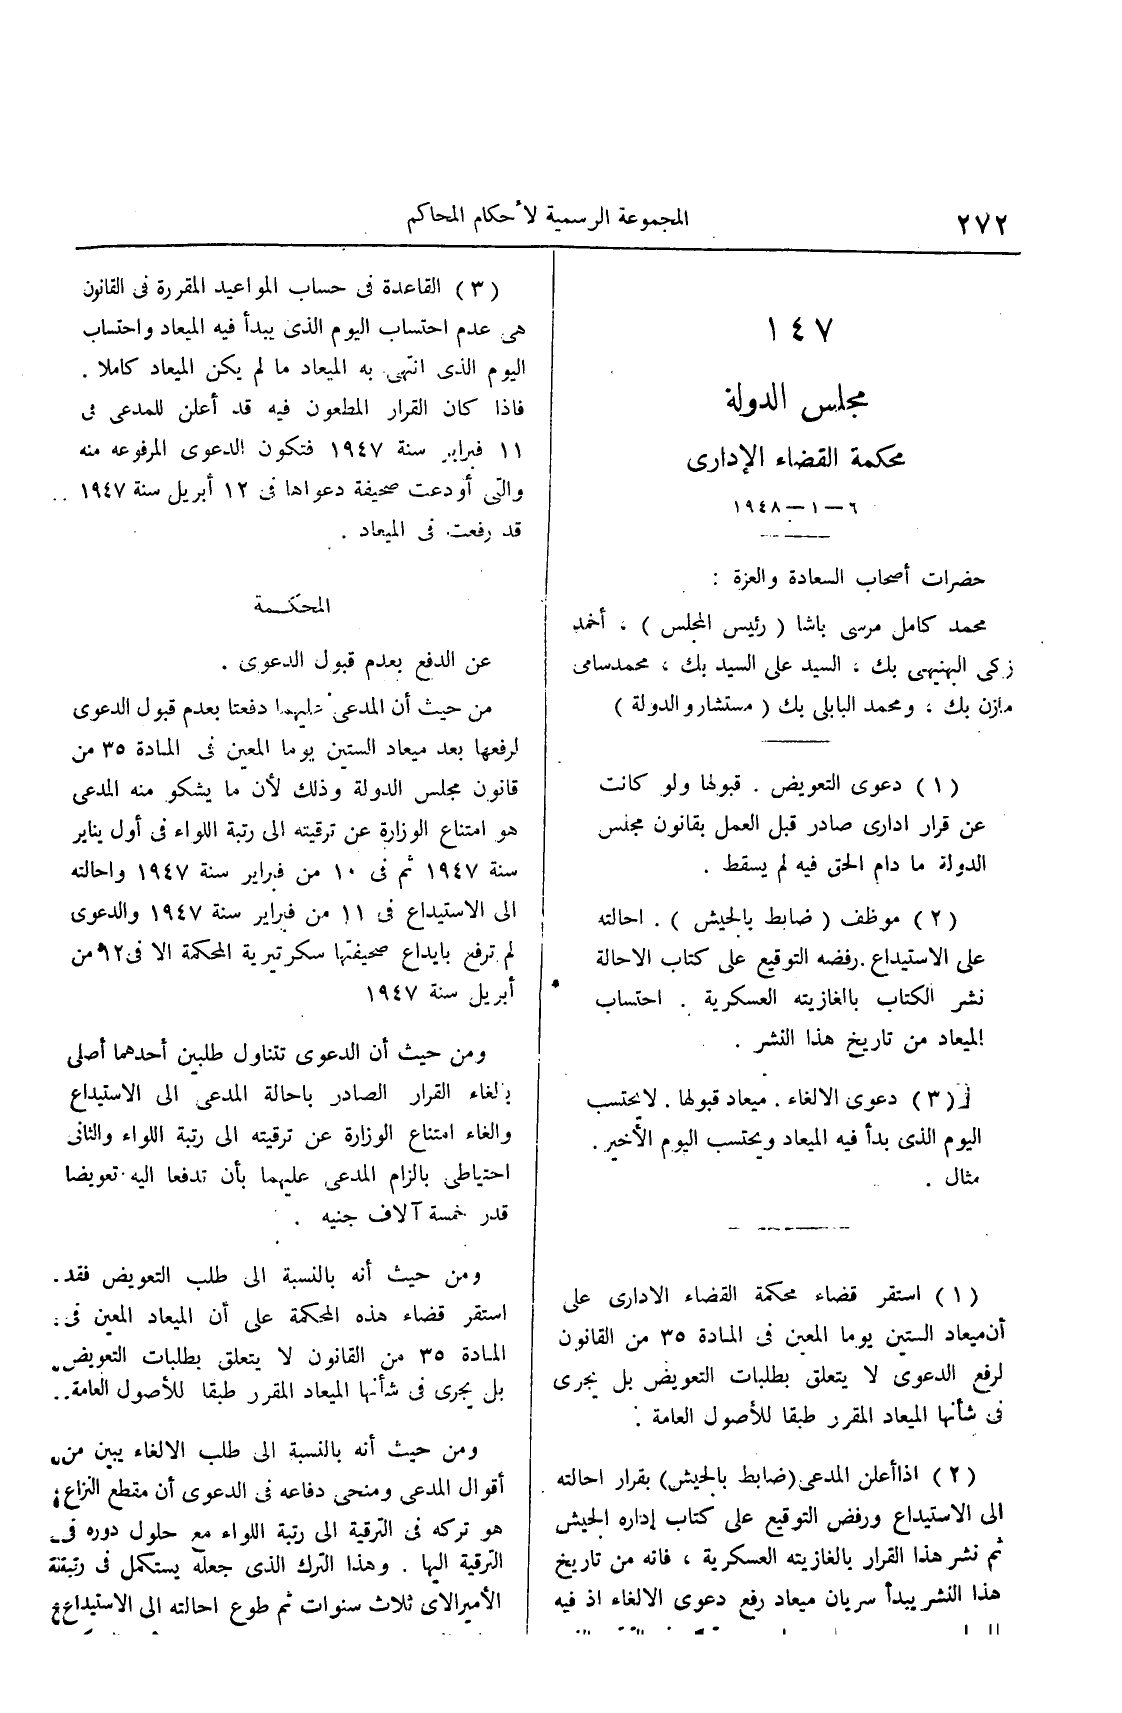 ٢٧٢
المجموعة الرسمية لأحكام المحاكم
١٤٧
مجلس الدولة
محكمة القضاء الإدارى
٦ — ١ — ١٩٤٨
حضرات أصحاب السعادة والعزة :
محمد كامل مرسى باشا ( رئيس المجلس ) ، أحمد
زكى البهنيهى بك ، السيد على السيد بك ، محمد سامى
مازن بك ، ومحمد البابلى بك ( مستشارو الدولة )
( ١ ) دعوى التعويض . قبولها ولو كانت
عن قرار ادارى صادر قبل العمل بقانون مجلس
الدولة ما دام الحق فيه لم يسقط .
( ٢ ) موظف ( ضابط بالجيش ) . احالته
على الاستيداع . رفضه التوقيع على كتاب الاحالة
نشر الكتاب بالغازيته العسكرية . احتساب
الميعاد من تاريخ هذا النشر .
( ٣ ) دعوى الالغاء . ميعاد قبولها . لا يحتسب
اليوم الذى بدأ فيه الميعاد ويحتسب اليوم الأخير .
مثال .
( ١ ) استقر قضاء محكمة القضاء الادارى على
أن ميعاد الستين يوما المعين فى المادة ٣٥ من القانون
لرفع الدعوى لا يتعلق بطلبات التعويض بل يجرى
فى شأنها الميعاد المقرر طبقا للأصول العامة .
( ٢ ) اذا أعلن المدعى (ضابط بالجيش) بقرار احالته
الى الاستيداع ورفض التوقيع على كتاب إداره الجيش
ثم نشر هذا القرار بالغازيته العسكرية ، فانه من تاريخ
هذا النشر يبدأ سريان ميعاد رفع دعوى الالغاء اذ فيه
( ٣ ) القاعدة فى حساب المواعيد المقررة فى القانون
هى عدم احتساب اليوم الذى يبدأ فيه الميعاد واحتساب
اليوم الذى انتهى به الميعاد ما لم يكن الميعاد كاملا .
فاذا كان القرار المطعون فيه قد أعلن للمدعى فى
١١ فبراير سنة ١٩٤٧ فتكون الدعوى المرفوعه منه
والتى أودعت صحيفة دعواها فى ١٢ أبريل سنة ١٩٤٧
قد رفعت فى الميعاد .
المحكمة
عن الدفع بعدم قبول الدعوى .
من حيث أن المدعى عليهما دفعتا بعدم قبول الدعوى
لرفعها بعد ميعاد الستين يوما المعين فى المادة ٣٥ من
قانون مجلس الدولة وذلك لأن ما يشكو منه المدعى
هو امتناع الوزارة عن ترقيته الى رتبة اللواء فى أول يناير
سنة ١٩٤٧ ثم فى ١٠ من فبراير سنة ١٩٤٧ واحالته
الى الاستيداع فى ١١ من فبراير سنة ١٩٤٧ والدعوى
لم ترفع بايداع صحيفتها سكرتيرية المحكمة الا فى من
أبريل سنة ١٩٤٧
ومن حيث أن الدعوى تتناول طلبين أحدهما أصلى
بالغاء القرار الصادر باحالة المدعى الى الاستيداع
والغاء امتناع الوزارة عن ترقيته الى رتبة اللواء والثانى
احتياطى بالزام المدعى عليهما بأن تدفعا اليه تعويضا
قدر خمسة آلاف جنيه .
ومن حيث أنه بالنسبة الى طلب التعويض فقد
استقر قضاء هذه المحكمة على أن الميعاد المعين فى
المادة ٣٥ من القانون لا يتعلق بطلبات التعويض
بل يجرى فى شأنها الميعاد المقرر طبقا للأصول العامة .
ومن حيث أنه بالنسبة الى طلب الالغاء يبين من
أقوال المدعى ومنحى دفاعه فى الدعوى أن مقطع النزاع
هو تركه فى الترقية الى رتبة اللواء مع حلول دوره فى
الترقية اليها . وهذا الترك الذى جعله يستكمل فى رتبة
الأميرالاى ثلاث سنوات ثم طوع احالته الى الاستيداع